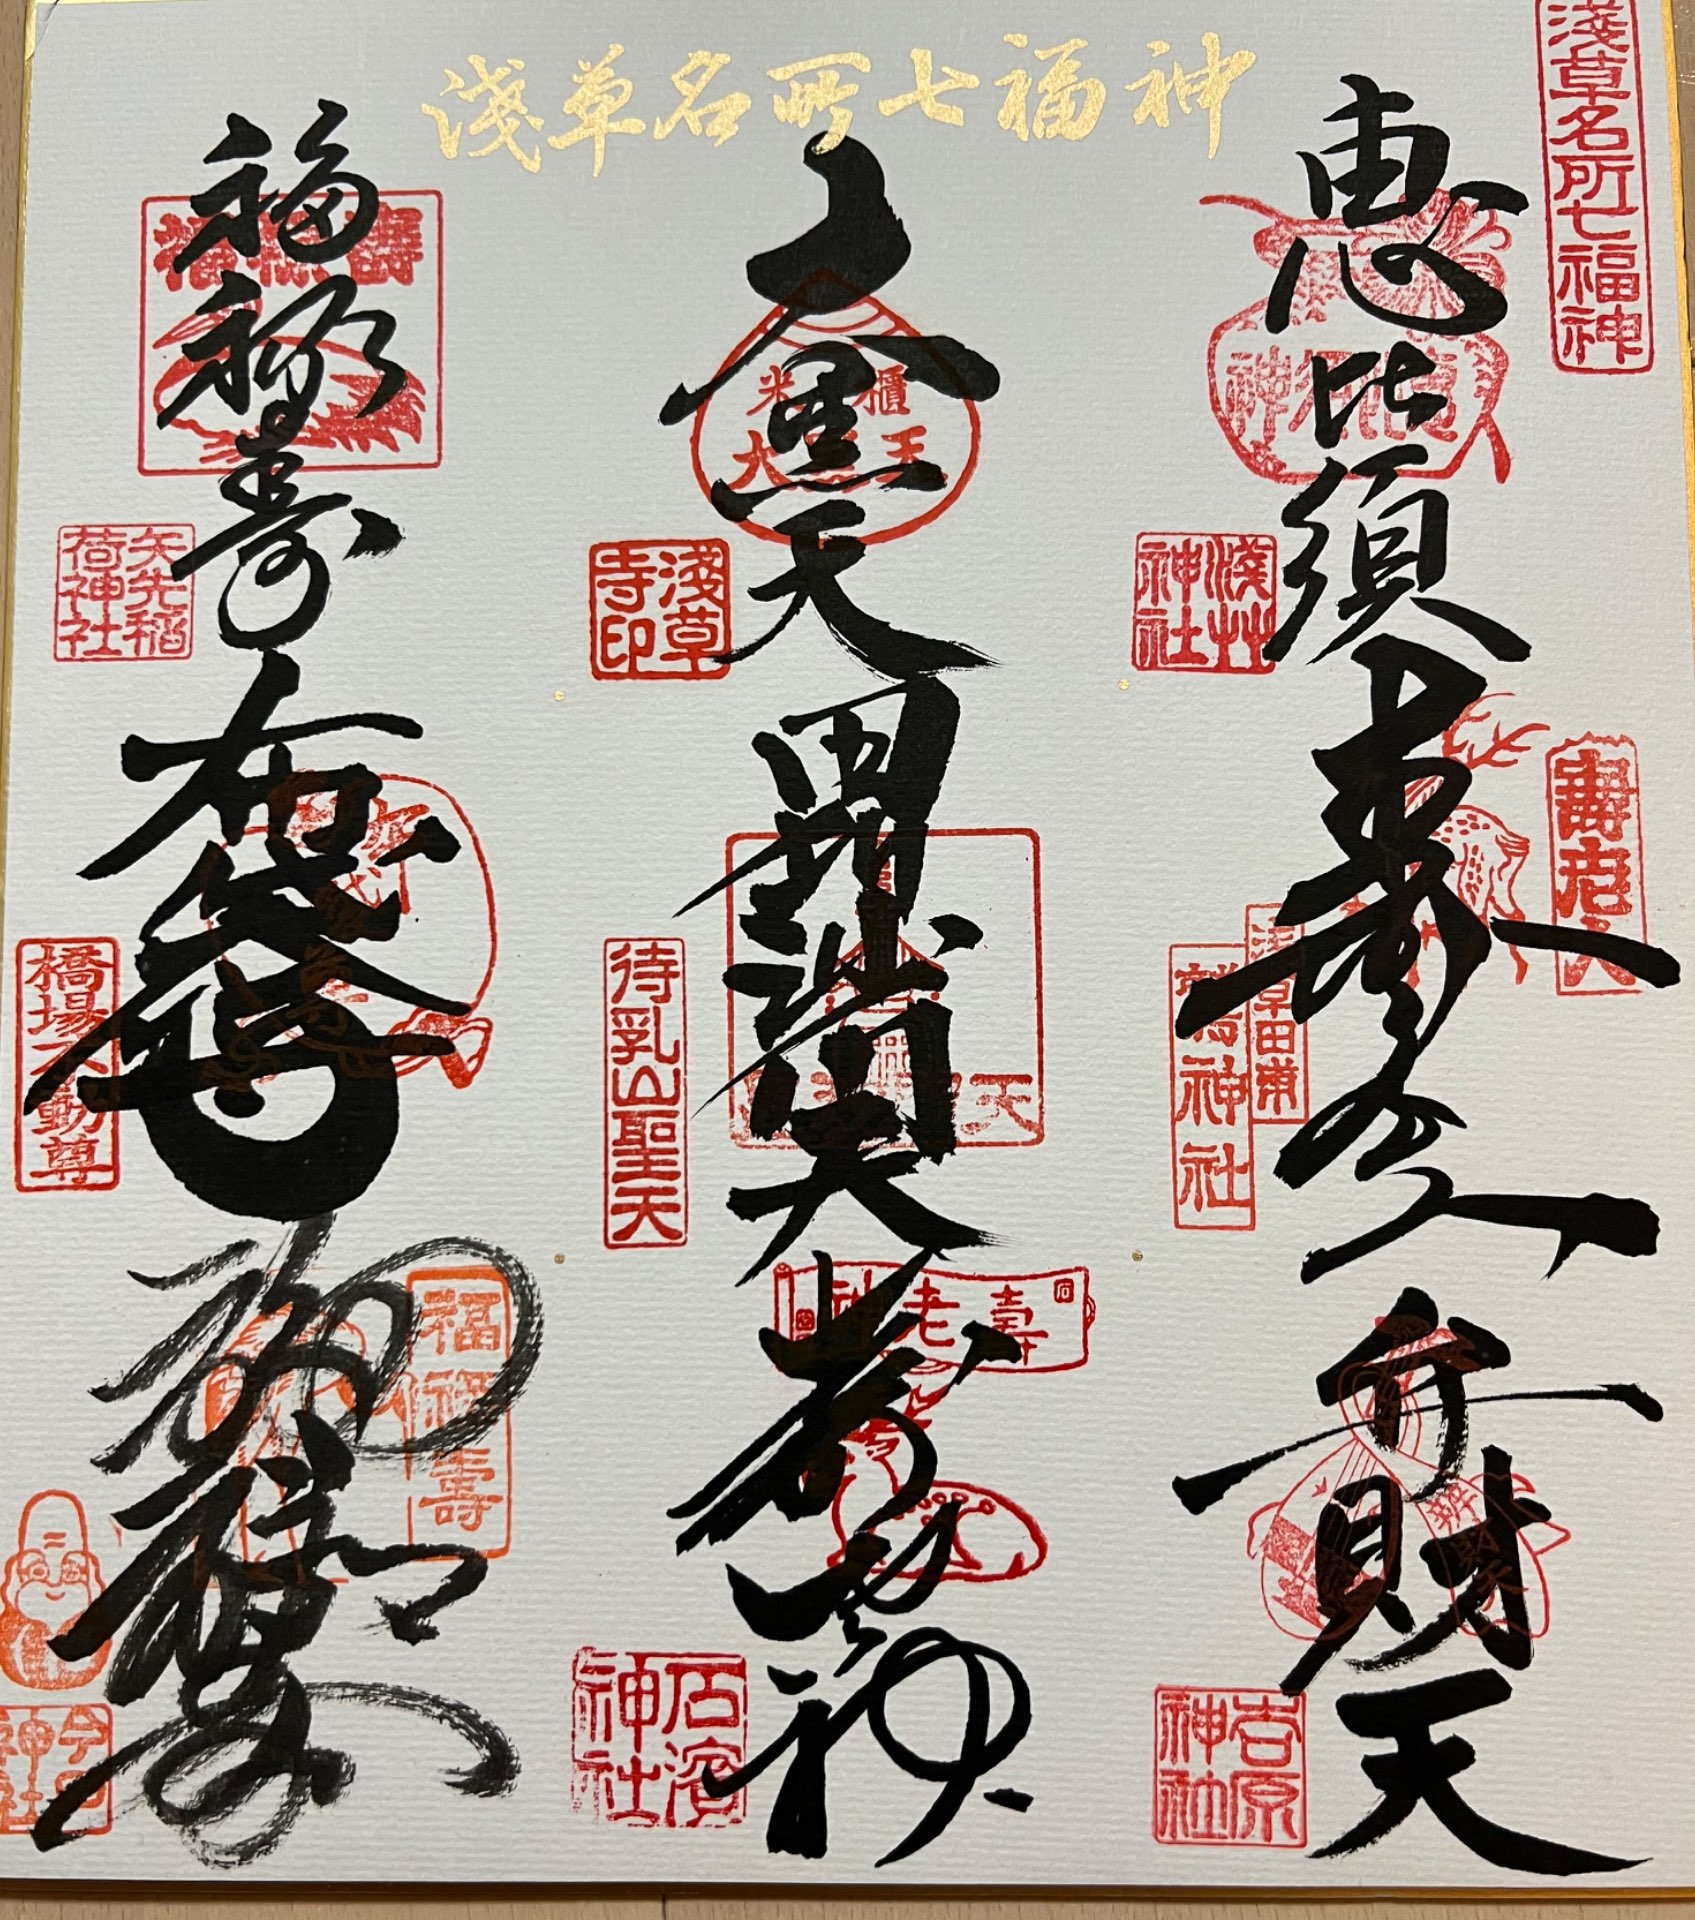 淺草名所七福神
淺草名所七福神
恵比須
恵比須神
淺草神社
寿老人
壽老人
浅草田甫
鷲神社
弁財天
吉原神社
大黒天
米櫃
大黒天王
淺草寺印
毘沙門天
待乳山聖天
寿老神
壽老神
石濱神社
福禄寿
福禄壽
矢先稲荷神社
布袋尊
橋場不動尊
福禄寿
福禄壽
今戸神社